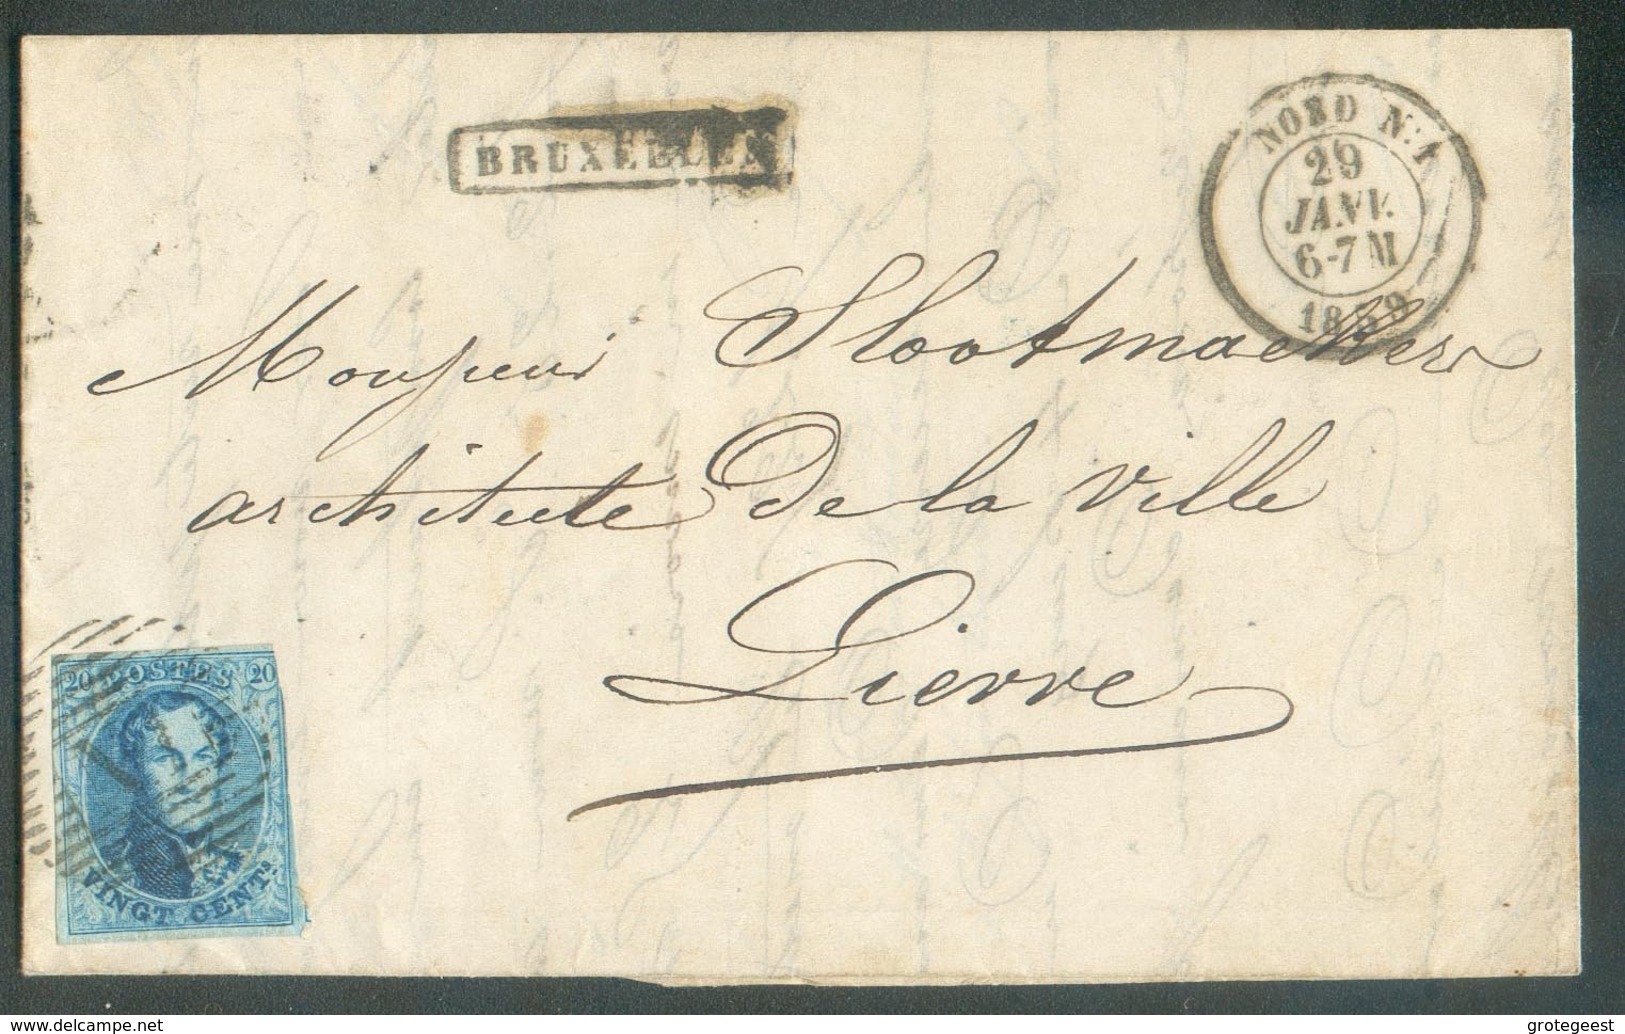 BRUXELLES
NORD N:1
29
JANV.
6-7 M
1859
Monsieur Slootmaekers
architecte de la ville
Lierre
20 POSTES 20
VINGT CENTS.
delcampe.net
grotegeest